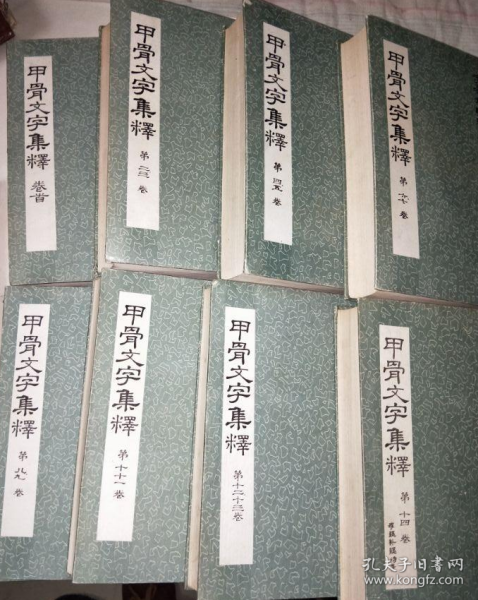 甲骨文字集釋 卷首
甲骨文字集釋 第二三卷
甲骨文字集釋 第四五卷
甲骨文字集釋 第六七卷
甲骨文字集釋 第八九卷
甲骨文字集釋 第十十一卷
甲骨文字集釋 第十二十三卷
甲骨文字集釋 第十四卷
孔夫子旧书网
www.kongfz.com